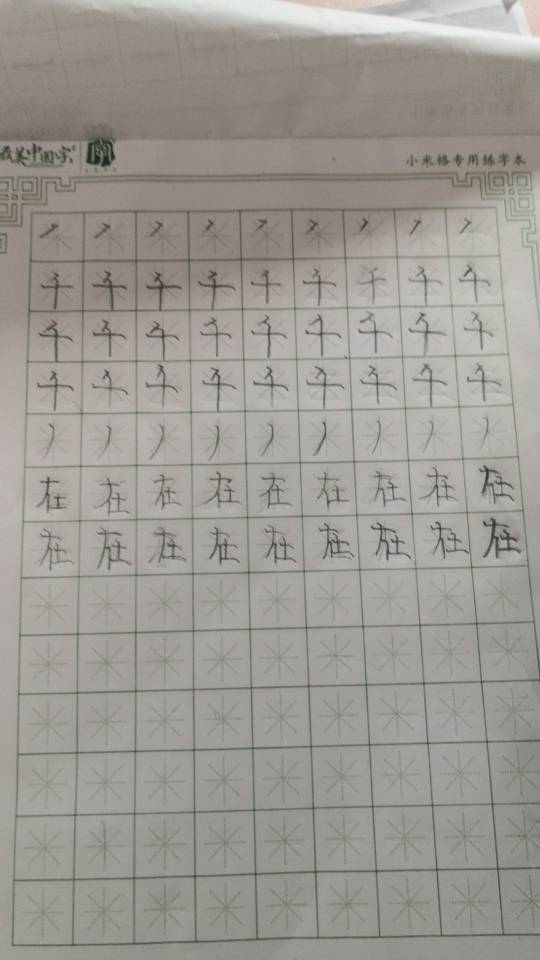 最美中国字 小米格专用练字本
㇀ ㇀ ㇀ ㇀ ㇀ ㇀ ㇀ ㇀ ㇀
千 千 千 千 千 千 千 千 千
千 千 千 千 千 千 千 千 千
千 千 千 千 千 千 千 千 千
丿 丿 丿 丿 丿 丿 丿 丿 丿
在 在 在 在 在 在 在 在 在
在 在 在 在 在 在 在 在 在